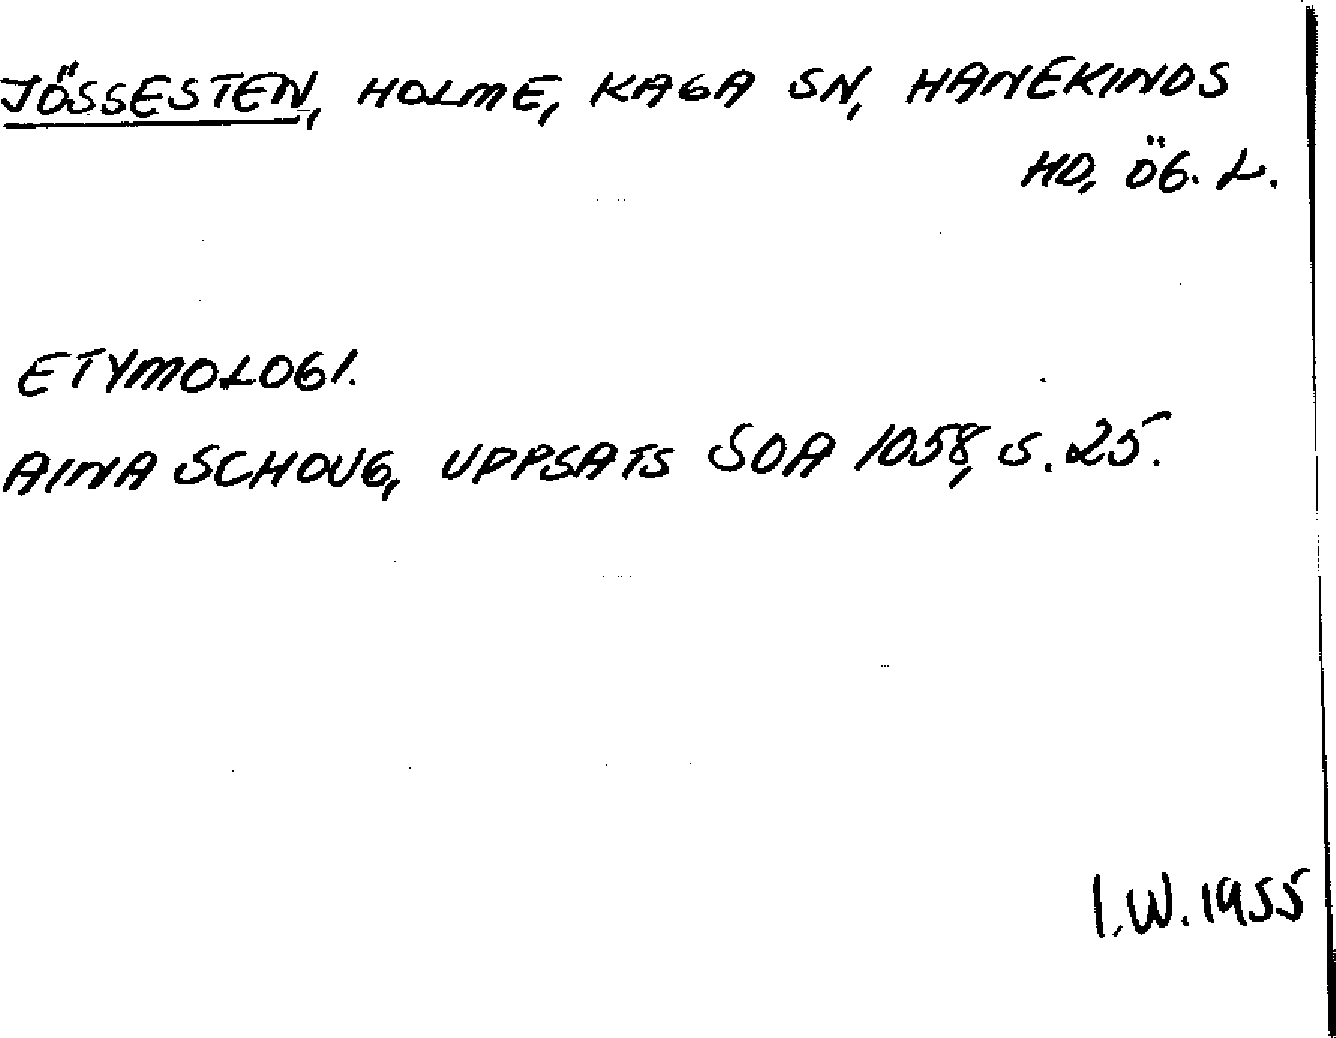 JÖSSESTEN, HOLME, KAGA SN, HANEKINDS
HD, ÖG. L.
ETYMOLOGI.
AINA SCHOUG, UPPSATS SOA 1058, S. 25.
I.W. 1955